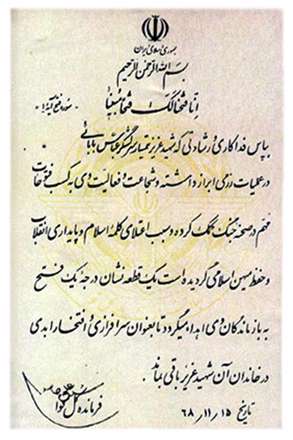 جمهوری اسلامی ایران
بسم الله الرحمن الرحیم
انا فتحنا لک فتحا مبینا
سوره فتح آیه ۱
بپاس فداکاری و رشادتی که شهید عزیز تیمسار سرلشگر عباس بابائی
در عملیات رزمی ابراز داشته و شجاعت و فعالیت وی به کسب فتوحات
مهم در صحنه جنگ کمک کرده و سبب اعتلای کلمه اسلام و پایداری انقلاب
و حفظ میهن اسلامی گردیده است یک قطعه نشان درجه یک فتح
به بازماندگان وی اهداء میگردد تا بعنوان سرافرازی و افتخار ابدی
در خاندان آن شهید عزیز باقی بماند.
تاریخ ۶۸/۱۱/۱۵
فرمانده کل قوا